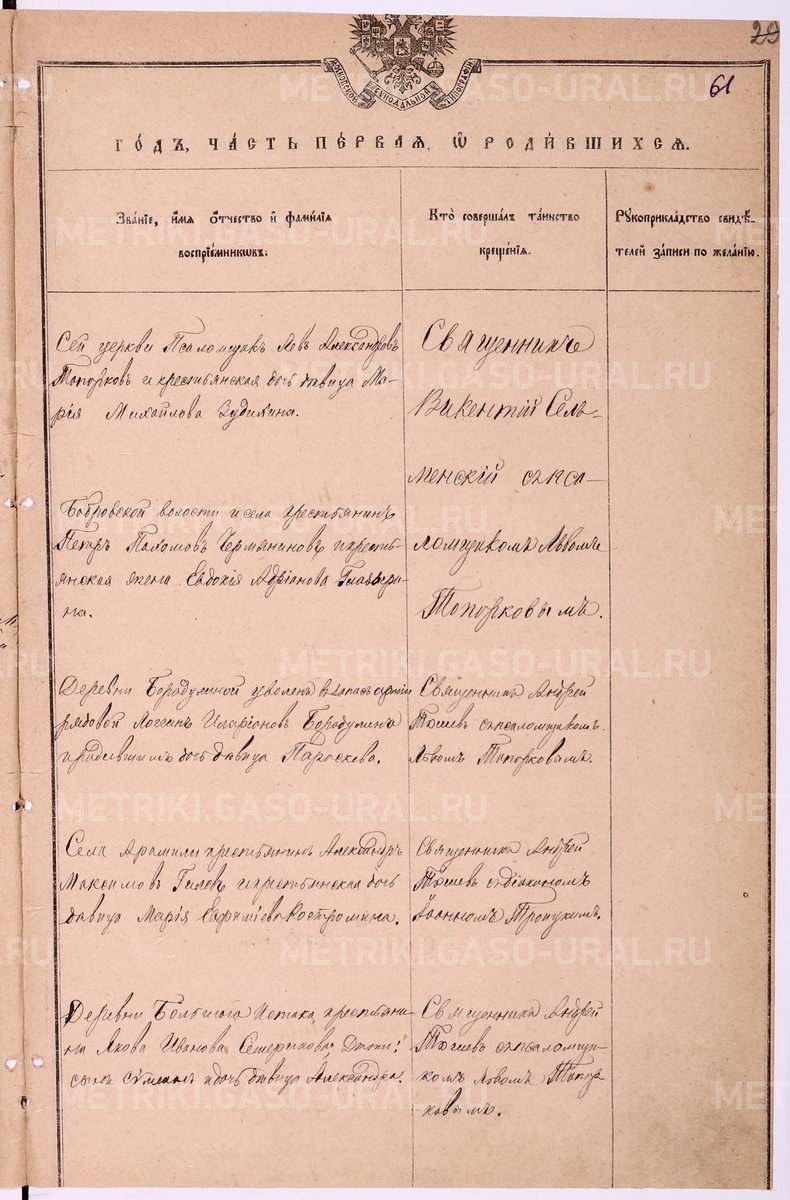 29
61
МОСКОВСКОЙ СѴНОДАЛЬНОЙ ТИПОГРАФІИ
ГО́ДЪ, ЧА́СТЬ ПЕ́РВАЯ, Ѡ РОДИ́ВШИХСЯ.
Зва́нїе, и́мя ѻ́тчество и҆ фами́лїя
воспрїе́мникѡвъ.
Кто̀ соверша́лъ та́инство
креще́нїя.
Рꙋкоприкла́дство свидѣ́-
телей за́писи по жела́нїю.
Сей церкви Псаломщикъ Левъ Александровъ
Топорковъ и крестьянская дочь девица Ма-
рія Михайлова Зудихина.
Священникъ
Викентій Сель-
менскій съ пса-
ломщикомъ Львомъ
Топорковымъ.
Бобровской волости и села крестьянинъ
Петръ Пахомовъ Чермяниновъ и кресть-
янская жена Евдокія Адріанова
на.
Деревни Бородулиной уволен въ запасъ арміи
рядовой Логгинъ Иларіоновъ Бородулинъ
и родившихъ дочь девица Параскева.
Священникъ Андрей
съ псаломщикомъ
Львомъ Топорковымъ.
Села Арамили крестьянинъ Александръ
Максимовъ Гилевъ и крестьянская дочь
девица Марія Евфиміева Костромина.
Священникъ Андрей
съ діакономъ
Іоанномъ Троицкимъ.
Деревни Большого Истока, крестьяни-
на Якова Иванова Дети:
сынъ и дочь девица Александра.
Священникъ Андрей
съ псаломщи-
комъ Львомъ Топор
ковымъ.
METRIKI.GASO-URAL.RU